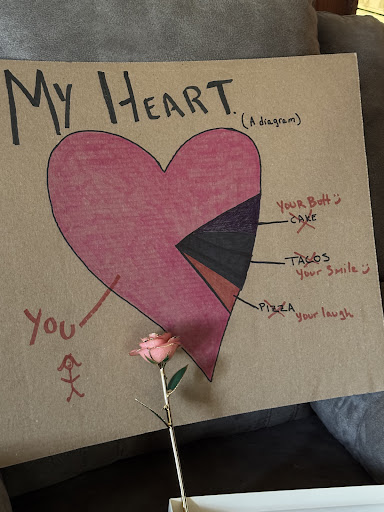 MY HEART.
(A diagram)
YOUR Butt :)
CAKE
TACOS
Your Smile :)
PIZZA
your laugh
YOU